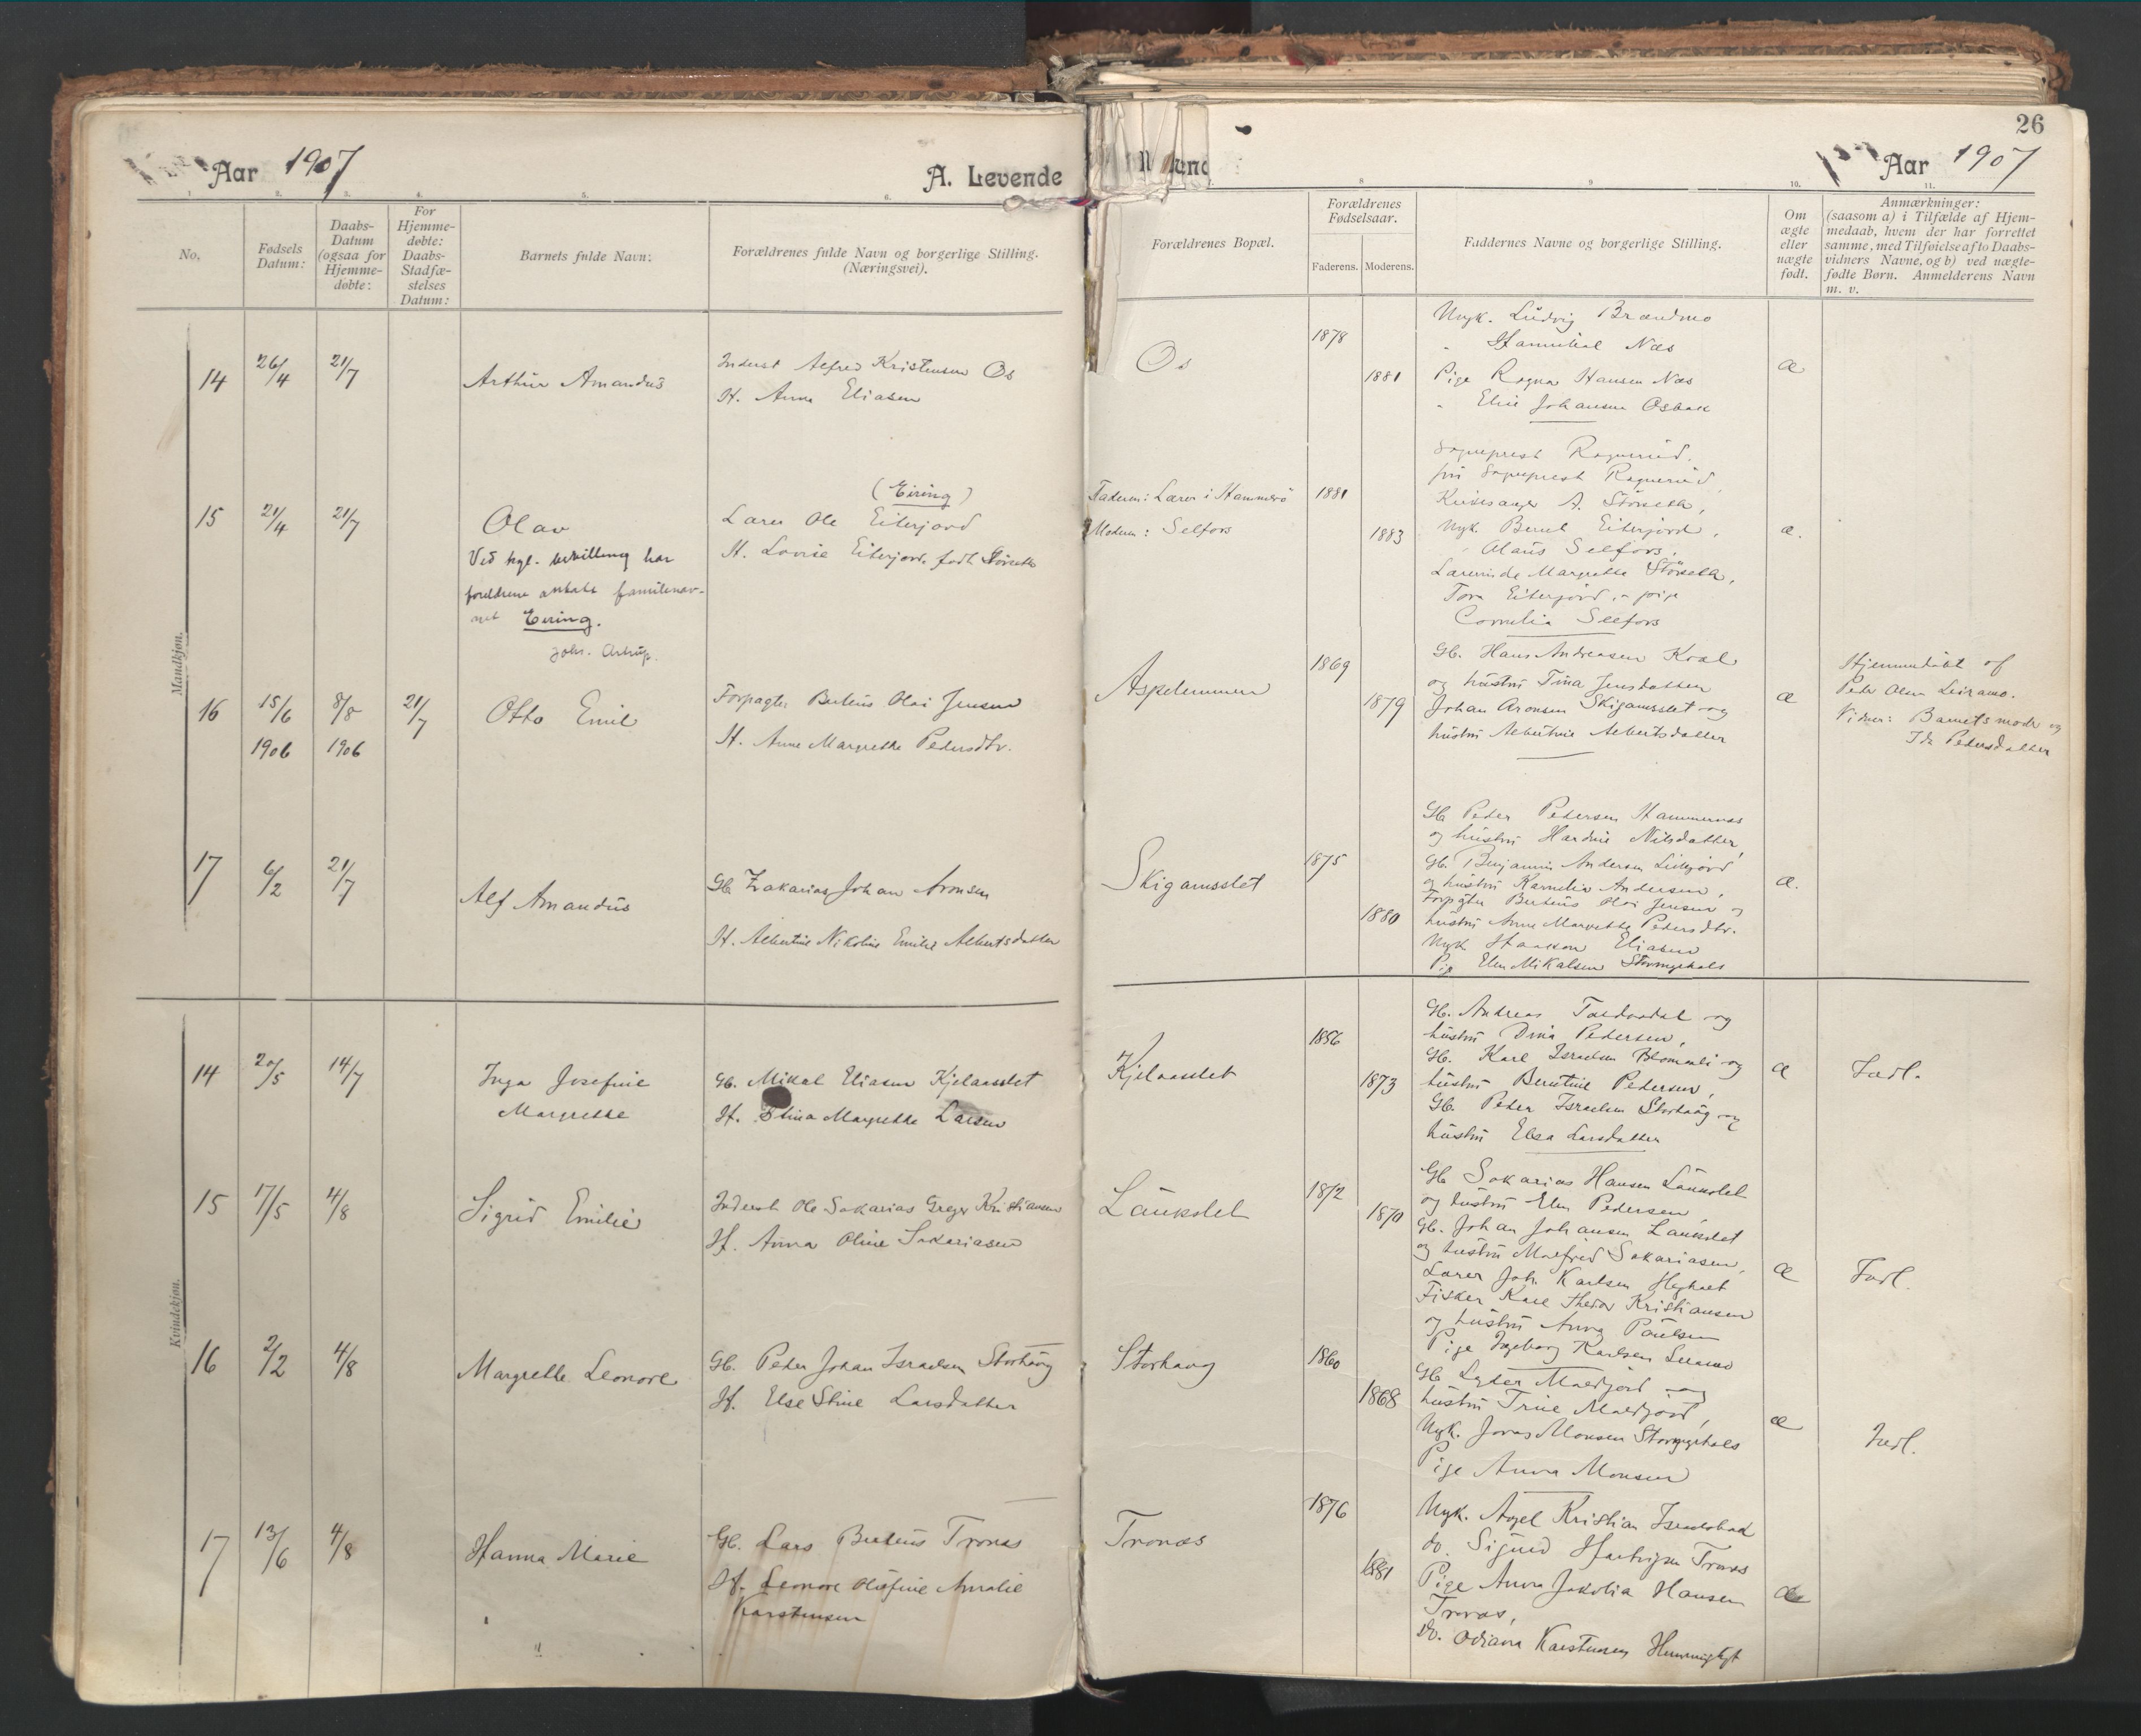 Aar 1907
A. Levende
26
Aar 1907
1. 2. 3. 4. 5. 6.
8 9 10. 11.
No.
Fødsels Datum:
Daabs-Datum (ogsaa for Hjemme-døbte:
For Hjemme-døbte: Daabs-Stadfæ-stelses Datum:
Barnets fulde Navn:
Forældrenes fulde Navn og borgerlige Stilling.
(Næringsvei).
Forældrenes Bopæl.
Forældrenes Fødselsaar.
Faderens. Moderens.
Faddernes Navne og borgerlige Stilling.
Om ægte eller uægte født.
Anmærkninger:
(saasom a) i Tilfælde af Hjem-
medaab, hvem der har forrettet
samme, med Tilføielse af to Daabs-
vidners Navne, og b) ved uægte-
fødte Børn. Anmelderens Navn
m. v.
Mandkjøn.
14 26/4 21/7
Arthur Amandus
Inderst Alfred Kristensen Os
H. Anna Eliasen
Os
1878
1881
Ungk. Ludvig Brændmo
" Hannibal Næs
Pige Ragna Hansen Næs
" Eline Johansen Osbak
æ
15 21/4 21/7
Olav
Ved kgl. bevilling har
foreldrene antatt familienav-
net Eiring.
Johs. Astrup.
(Eiring)
Lærer Ole Eiterjord
H. Lovise Eiterjord, født Störseth
Faderen: Lærer i Hammerö
Moderen: Selfors
1881
1883
Sogneprest
fru Sogneprest
Kirkesanger A. Störseth,
Ungk. Berut Eiterjord,
" Olaus Selfors,
Lærerinde Margrethe Störseth,
Tora Eiterjord, pige
Cornelia Selfors
æ.
16 15/6 1906 8/8 1906 21/7
Otto Emil
Forpagter Berteus Olai Jensen
H. Anne Margrethe Pedersdtr.
Aspelemmen
1869
1879
Gb. Hans Andreasen Kval
og hustru Tina Jensdatter
Johan Aronsen Skigamsslet og
hustru Albertine Albertsdatter
æ
Hjemmedöbt af
Peder Olsen Leiramo.
Vidner: Barnets moder og
Ida Pedersdatter
17 6/2 21/7
Alf Amandus
Gb Zakarias Johan Aronsen
H. Albertine Nikoline Emilie Albertsdatter
Skigamsslet
1875
1880
Gb Peder Pedersen Hammernæs
og hustru Hardine Nilsdatter,
Gb. Benjamin Andersen
og hustru Kornelia Andersen,
Forpagter Berteus Olai Jensen og
hustru Anne Margrethe Pedersdtr.
Ungk. Haakon Eliasen
Pige Elen Mikalsen Stormyrhals
æ.
Kvindekjøn.
14 20/5 14/7
Inga Josefine
Margrethe
Gb. Mikal Eliasen Kjelaasslet
H. Stina Margrethe Larsen
Kjelaasslet
1856
1873
Gb. Andreas og
hustru Dina Pedersen,
Gb. Karl Israelsen Blomauli og
hustru Berntine Pedersen,
Gb. Peder Israelsen Storhaug og
hustru Elsa Larsdatter
æ
Indl.
15 17/5 4/8
Sigrid Emilie
Inderst Ole Sakarias Greger Kristiansen
H. Anna Oline Sakariasen
Laukslet
1872
1870
Gb Sakarias Hansen Laukslet
og hustru Elen Pedersen
Gb. Johan Johansen Laukslet
og hustru Malfred Sakariasen,
Lærer Joh. Karlsen
Fisker Karl Theodor Kristiansen
og hustru Anna Paulsen
Pige Ingeborg Karlsen
æ
Indl.
16 2/2 4/8
Margrethe Leonore
Gb. Peder Johan Israelsen Storhaug
H. Else Stine Larsdatter
Storhaug
1860
1868
Gb Lyder Maldfjord og
hustru Trine Maldfjord,
Ungk. Jonas Monsen Stormyrhals
Pige Anna Monsen
æ
Indl.
17 13/6 4/8
Hanna Marie
Gb. Lars Berteus Tronæs
H. Leonore Olufine Amalie
Karstensen
Tronæs
1876
1881
Ungk. Axel Kristian
do. Sigurd Hartvigsen Tronæs
Pige Anna Jakobia Hansen
Tronæs,
do. Odiana Karstensen
æ